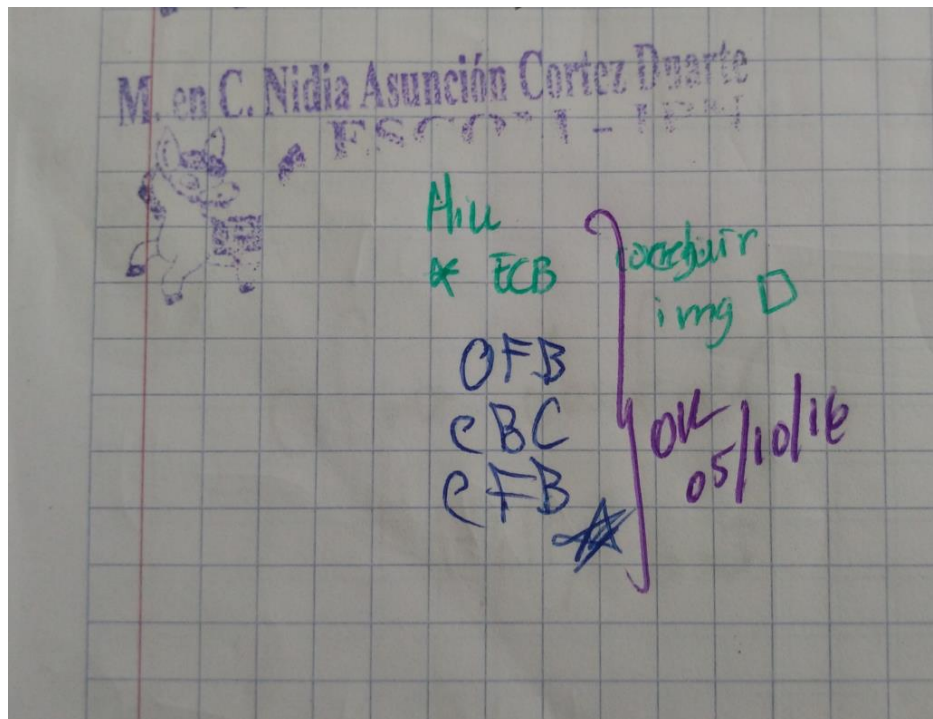 M. en C. Nidia Asunción Cortez Duarte
ESCOM - IPN
Hill
* ECB
img
OFB
CBC
CFB
OK
05/10/16